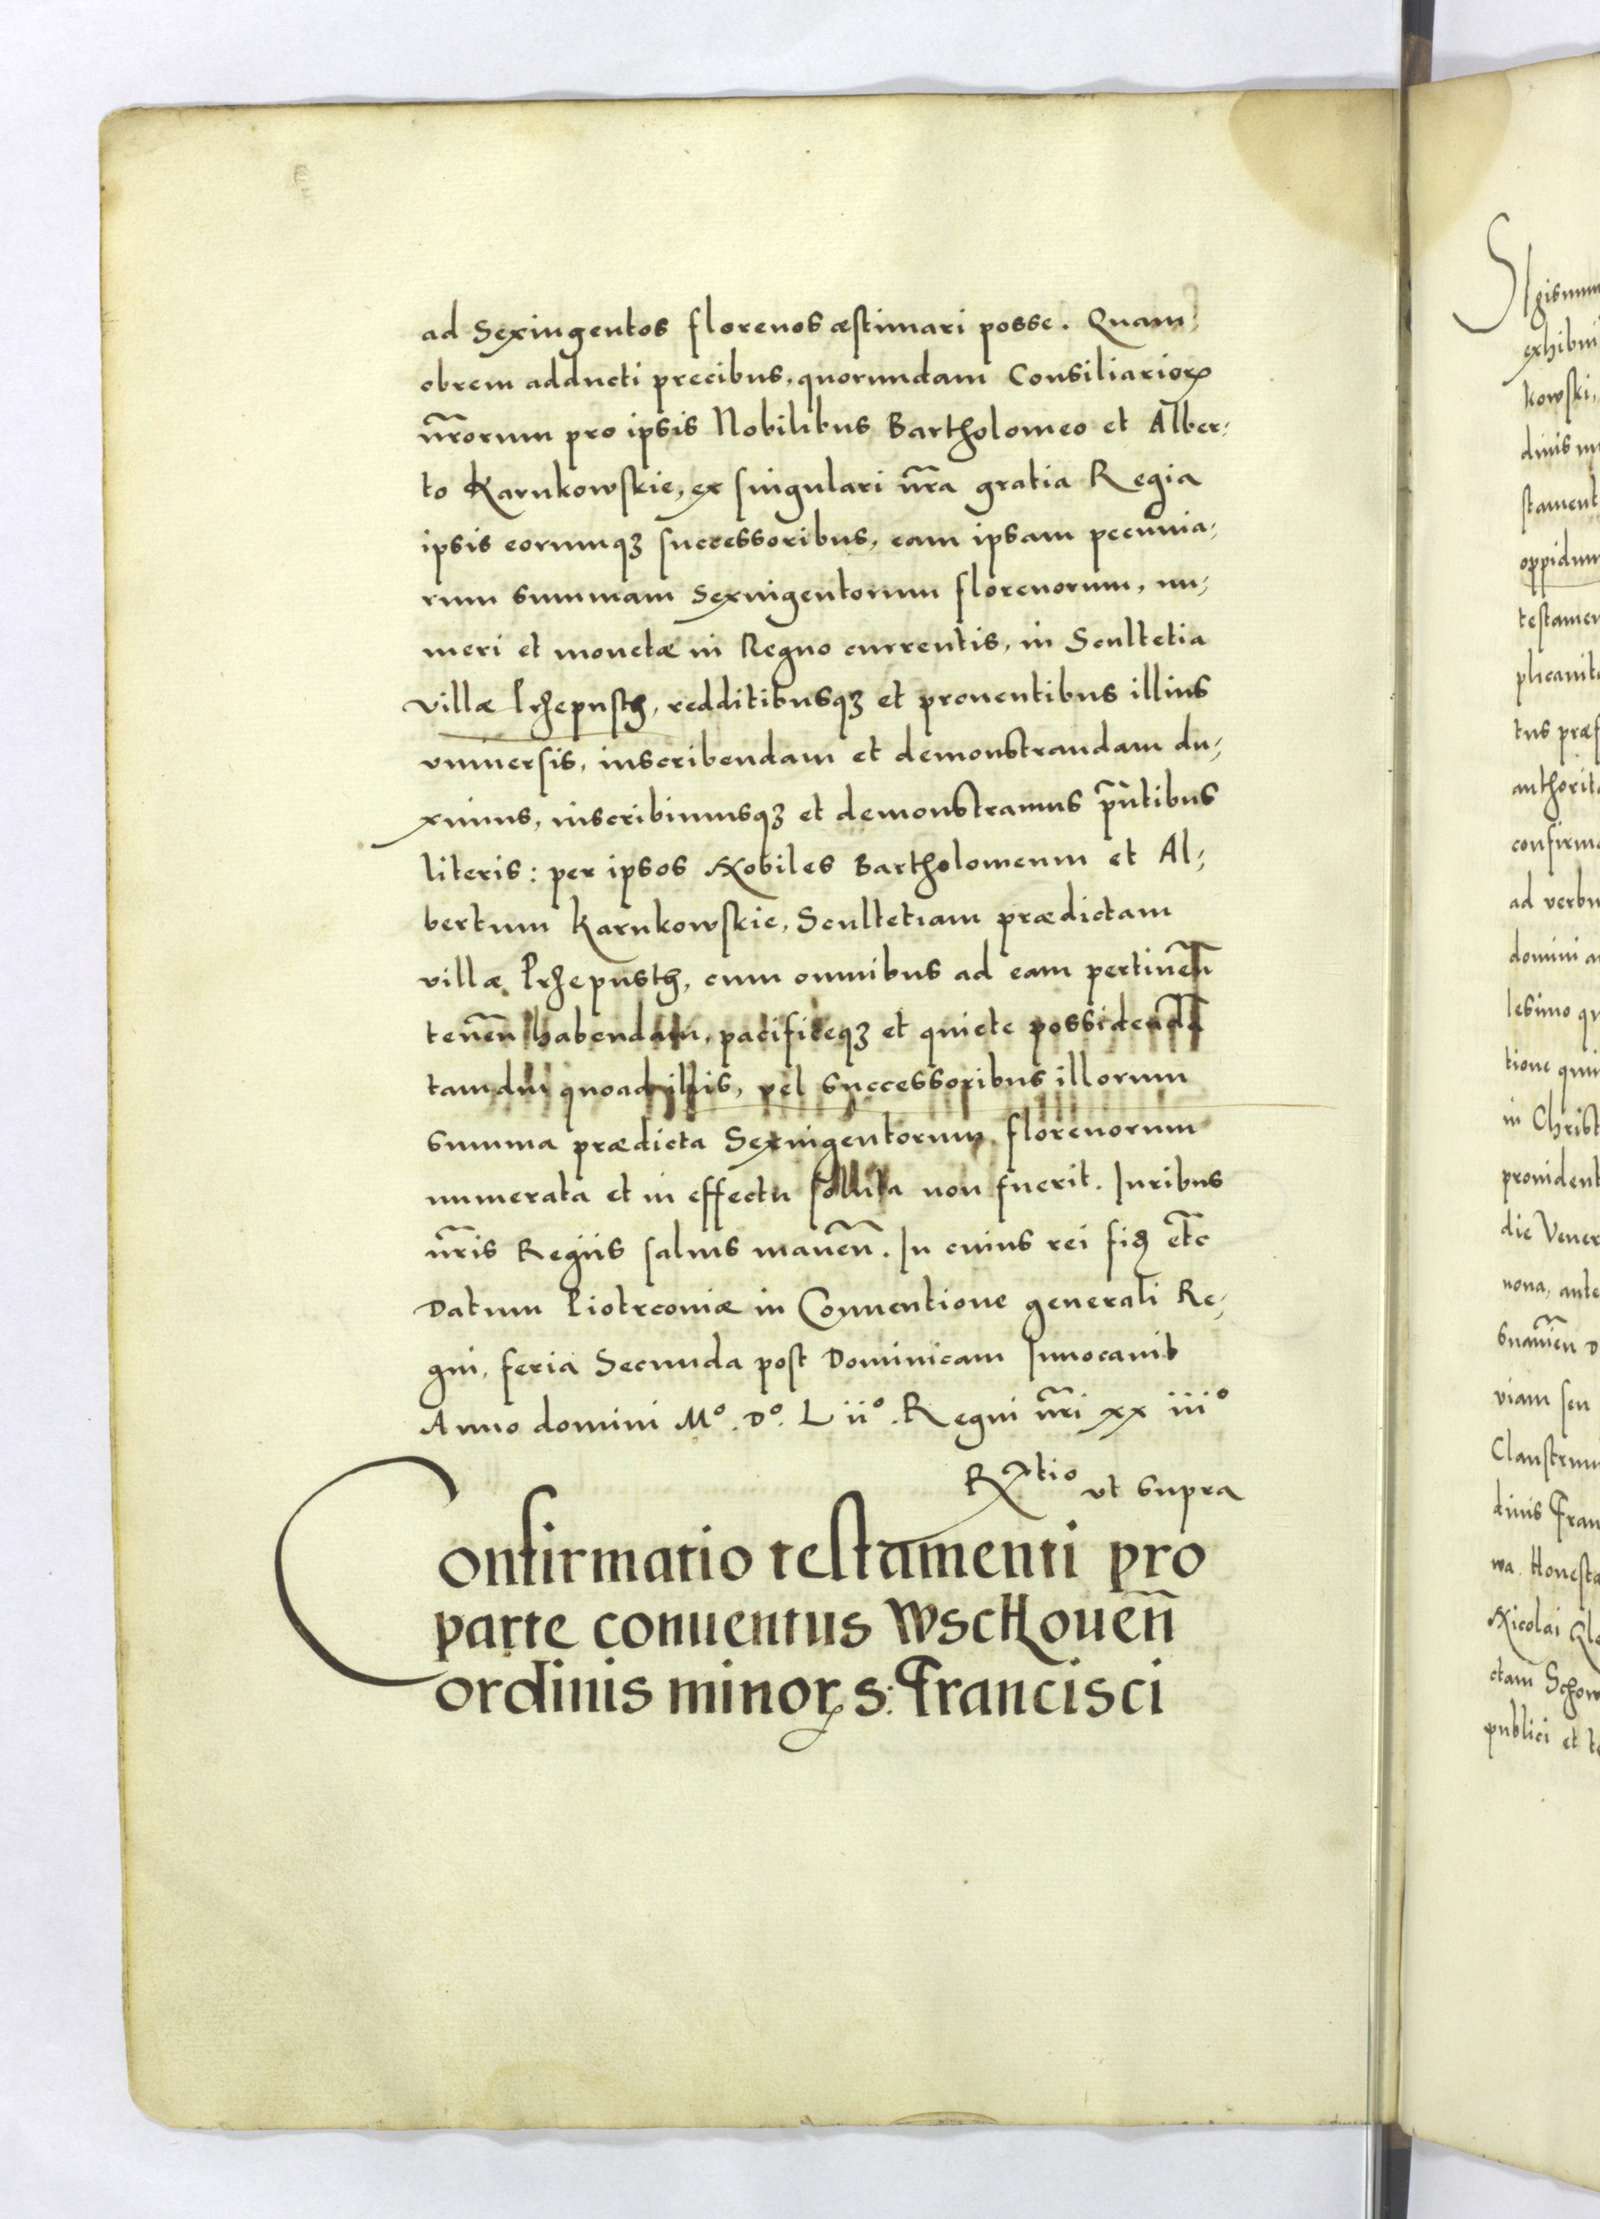 ad Sexingentos florenos æstimari posse. Quam,
obrem adducti precibus, quorundam Consiliarioꝝ
nr̃orum pro ipsis Nobilibus Bartholomeo et Alber,
to Karnkowskie, ex singulari nr̃a gratia Regia
ipsis eorumqꝫ successoribus, eam ipsam pecunia,
rum summam Sexingentorum florenorum, nu,
meri et monetæ in Regno currentis, in Scultetia
villæ Przepusth, redditibusqꝫ et prouentibus illius
vniuersis, inscribendam et demonstrandam du,
ximus, inscribimusqꝫ et demonstramus pñtibus
literis: per ipsos Nobiles Bartholomeum et Al,
bertum Karnkowskie, Scultetiam prædictam
villæ Przepusth, cum omnibus ad eam pertineñ
teneñ habendam, pacificeqꝫ et quiete possidendã
tamdiu quoad illis, vel successoribus illorum
summa prædicta Sexingentorum florenorum
numerata et in effectu soluta non fuerit. Iuribus
nr̃is Regiis saluis maneñ. In cuius rei fiꝫ etc̃
Datum Piotrcouiæ in Conuentione generali Re,
gni, feria Secunda post Dominicam Inuocauit
Anno domini Mº. Dº. L iiº. Regni nr̃i xx iiiº
Rꝫtio vt supra
Confirmatio testamenti pro
parte conuentus Wschoueñ
ordinis minoꝝ s: Francisci
SIgismun
exhibui
kowski,
dinis mi
stament
oppidum
testamen
plicauit
tus præf
authorita
confirma
ad verbu
domini a
lesimo qu
tione qui
in Christ
prouident
die Vener
nona, ante
viam seu
Claustrum
dinis Fran
wa. Honesta
Nicolai
ctam Schow
publici et te